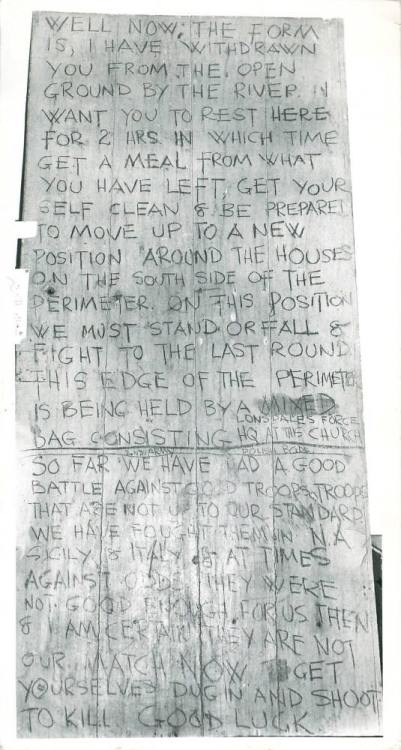 WELL NOW, THE FORM
IS, I HAVE WITHDRAWN
YOU FROM THE OPEN
GROUND BY THE RIVER. I
WANT YOU TO REST HERE
FOR 2 HRS. IN WHICH TIME
GET A MEAL FROM WHAT
YOU HAVE LEFT, GET YOUR
SELF CLEAN & BE PREPARED
TO MOVE UP TO A NEW
POSITION AROUND THE HOUSES
ON THE SOUTH SIDE OF THE
PERIMETER. ON THIS POSITION
WE MUST STAND OR FALL &
FIGHT TO THE LAST ROUND.
THIS EDGE OF THE PERIMETER
IS BEING HELD BY A MIXED
LONSDALES FORCE
BAG CONSISTING HQ AT THIS CHURCH
SO FAR WE HAVE HAD A GOOD
BATTLE AGAINST GOOD TROOPS, TROOPS
THAT ARE NOT UP TO OUR STANDARD
WE HAVE FOUGHT THEM IN N.A
SICILY & ITALY & AT TIMES
AGAINST ODDS THEY WERE
NOT GOOD ENOUGH FOR US THEN
& I AM CERTAIN THEY ARE NOT
OUR MATCH NOW GET
YOURSELVES DUG IN AND SHOOT
TO KILL GOOD LUCK